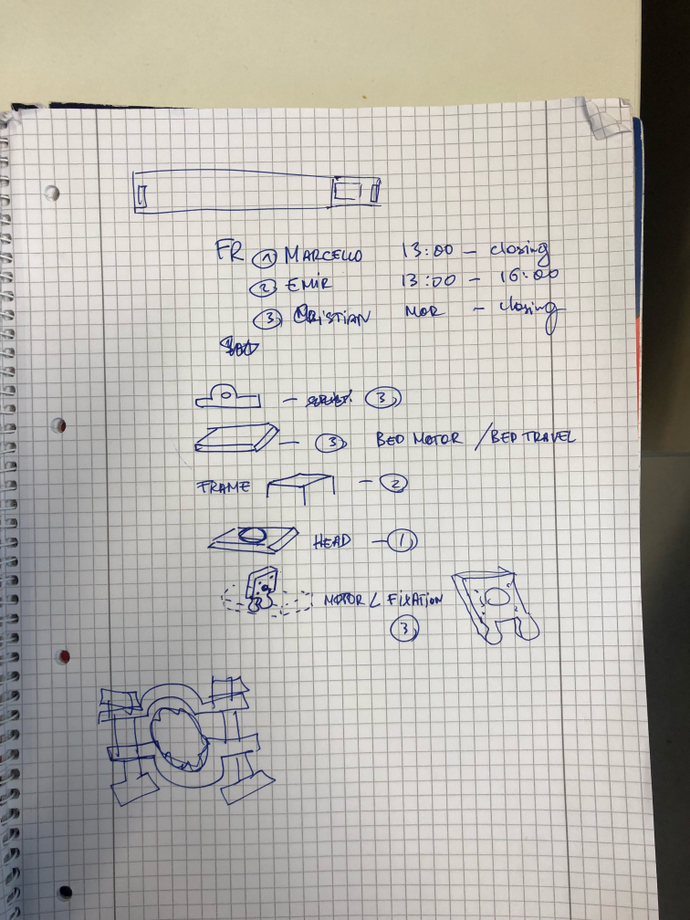 FR ① MARCELLO 13:00 – closing
② EMIR 13:00 – 16:00
③ CRISTIAN MOR – closing
– ③
– ③ BED MOTOR / BED TRAVEL
FRAME – ②
HEAD – ①
MOTOR / FIXATION
③